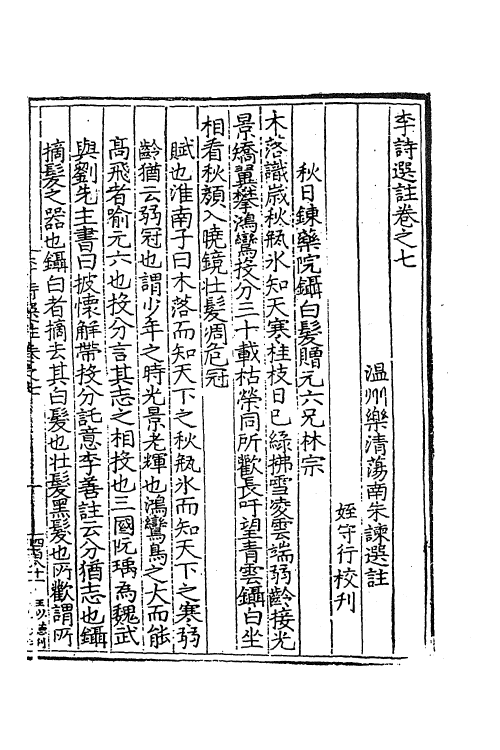 李詩選註卷之七
温州樂清蕩南朱諫選註
姪守行校刋
秋日鍊藥院鑷白髮贈元六兄林宗
木落識歳秋瓶氷知天寒桂枝日已緑拂雪凌雲端弱齡接光
景矯翼攀鴻鸞投分三十載枯榮同所歡長吁望青雲鑷白坐
相看秋顔入曉鏡壮髮凋危冠
賦也淮南子曰木落而知天下之秋瓶氷而知天下之寒弱
齡猶云弱冠也謂少年之時光景老輝也鴻鸞鳥之大而能
髙飛者喻元六也投分言其志之相投也三國阮瑀為魏武
與劉先主書曰披懐解帶投分託意李善註云分猶志也鑷
摘髮之器也鑷白者摘去其白髮也壮髮黑髮也所歡謂所